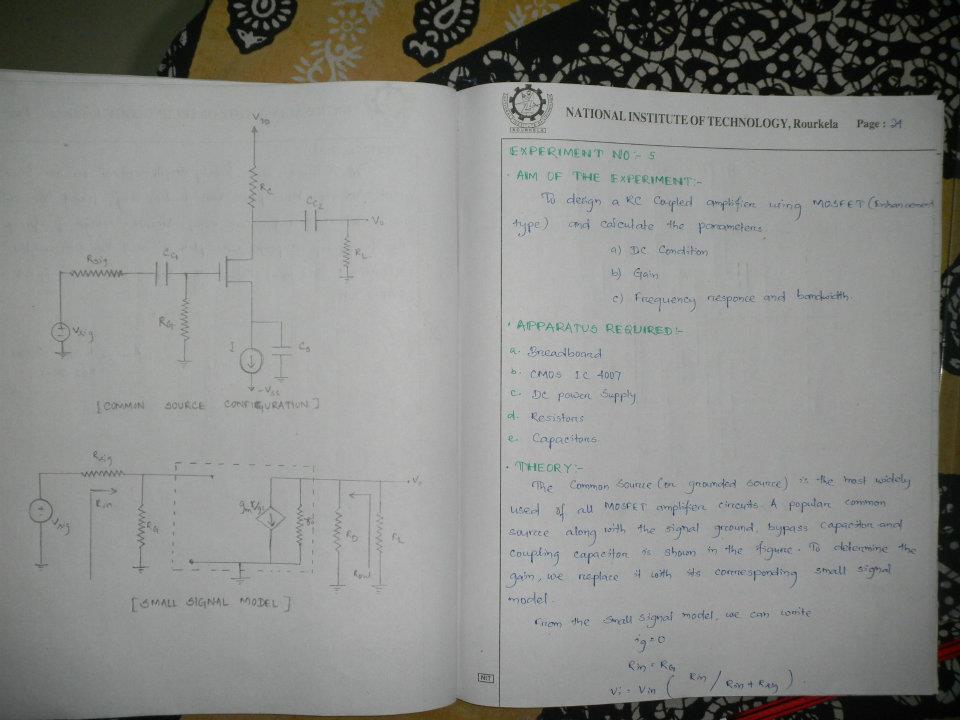 V_DD
R_C
C_C2
V_o
R_L
R_sig
C_C1
R_G
V_sig
I
C_S
-V_SS
[COMMON SOURCE CONFIGURATION]
R_sig
V_o
R_in
V_sig
R_G
g_m V_gs
r_o
R_D
R_L
R_out
[SMALL SIGNAL MODEL]
NATIONAL INSTITUTE OF TECHNOLOGY, Rourkela Page : 24
ROURKELA
EXPERIMENT NO :- 5
· AIM OF THE EXPERIMENT:-
To design a RC Coupled amplifier using MOSFET (Enhancement
type) and calculate the parameters.
a) DC Condition
b) Gain
c) Frequency responce and bandwidth.
· APPARATUS REQUIRED:-
a. Breadboard
b. CMOS IC 4007
c. DC power Supply
d. Resistors
e. Capacitors
· THEORY:-
The Common Source (or grounded source) is the most widely
used of all MOSFET amplifier circuits. A popular common
source along with the signal ground, bypass capacitor and
coupling capacitor is shown in the figure. To determine the
gain, we replace it with its corresponding small signal
model.
From the small signal model, we can write
ig = 0
Rin = RG
Vi = Vin ( Rin / Rin + Rsig ).
NIT